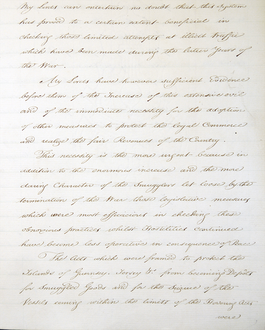 My Lords can entertain no doubt that this System
has proved to a certain extent beneficial in
checking those limited attempts at illicit traffic
which have been made during the latter years of
the War.
My Lords have however sufficient Evidence
before them of the Increase of this extensive evil
and of the immediate necessity for the adoption
of other measures to protect the legal Commerce
and realize the fair Revenues of the Country.
This necessity is the more urgent because in
addition to the enormous increase and the more
daring Character of the Smugglers let loose by the
termination of the War those legislative measures
which were most efficacious in checking their
obnoxious practices whilst Hostilities continued
have become less operative in consequence of Peace
The Acts which were framed to protect the
Islands of Guernsey, Jersey &c from becoming Depots
for Smuggled Goods and for the Seizure of the
Vessels coming within the limits of the Hovering Acts
were